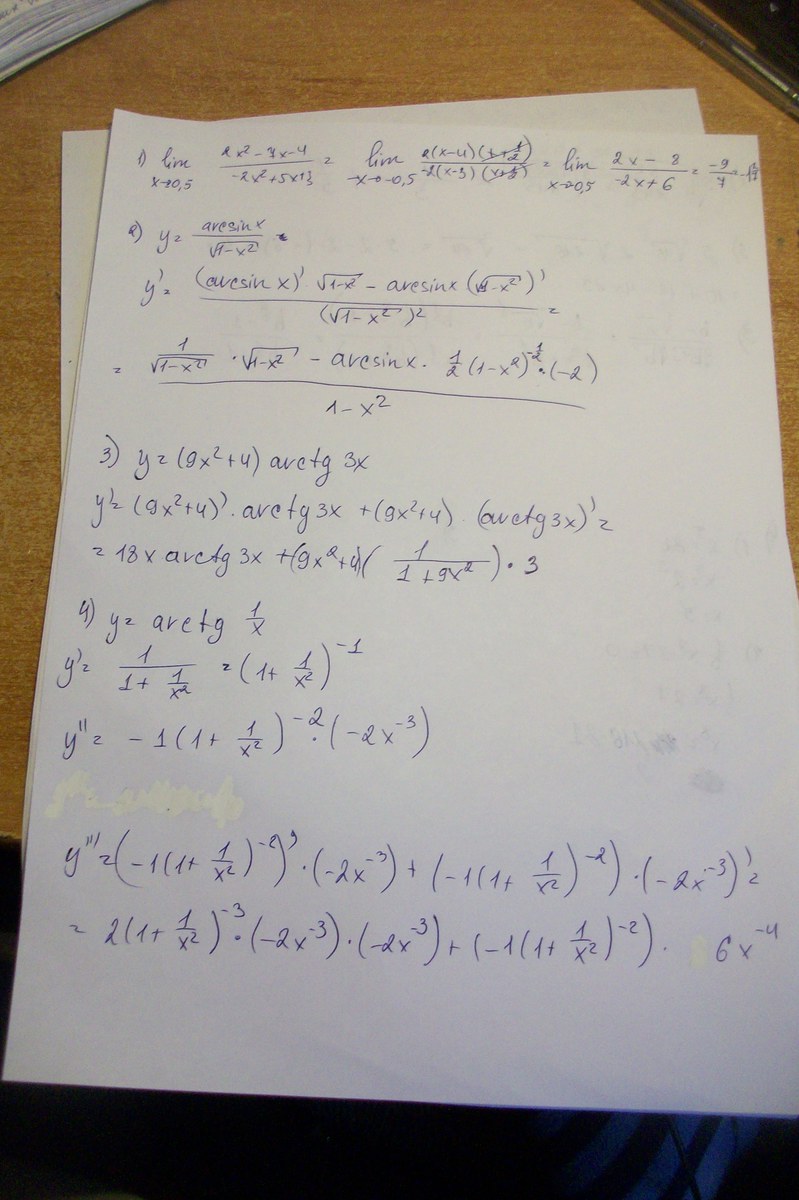 1) lim x→0,5 (2x² - 7x - 4)/(-2x² + 5x + 3) = lim x→-0,5 2(x-4)(x+1/2)/-2(x-3)(x+1/2) = lim x→0,5 (2x - 8)/(-2x + 6) = -9/7 =
2) y = arcsin x/√(1-x²)
y' = ((arcsin x)' √(1-x²) - arcsin x (√(1-x²))')/(√(1-x²))² =
= (1/√(1-x²) · √(1-x²) - arcsin x · 1/2 (1-x²)^(-1/2) · (-2))/(1-x²)
3) y = (9x²+4) arctg 3x
y' = (9x²+4)' · arctg 3x + (9x²+4) · (arctg 3x)' =
= 18x arctg 3x + (9x²+4)(1/(1+9x²)) · 3
4) y = arctg 1/x
y' = 1/(1 + 1/x²) = (1 + 1/x²)^(-1)
y'' = -1(1 + 1/x²)^(-2) · (-2x^(-3))
y''' = (-1(1 + 1/x²)^(-2))' · (-2x^(-3)) + (-1(1 + 1/x²)^(-2)) · (-2x^(-3))' =
= 2(1 + 1/x²)^(-3) · (-2x^(-3)) · (-2x^(-3)) + (-1(1 + 1/x²)^(-2)) · 6x^(-4)